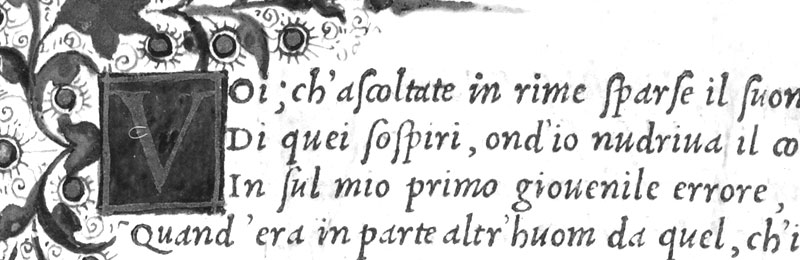 VOi; ch'aſcoltate in rime ſparſe il ſuon
Di quei ſoſpiri, ond'io nudriua il co
In ſul mio primo giouenile errore,
Quand'era in parte altr'huom da quel, ch'i